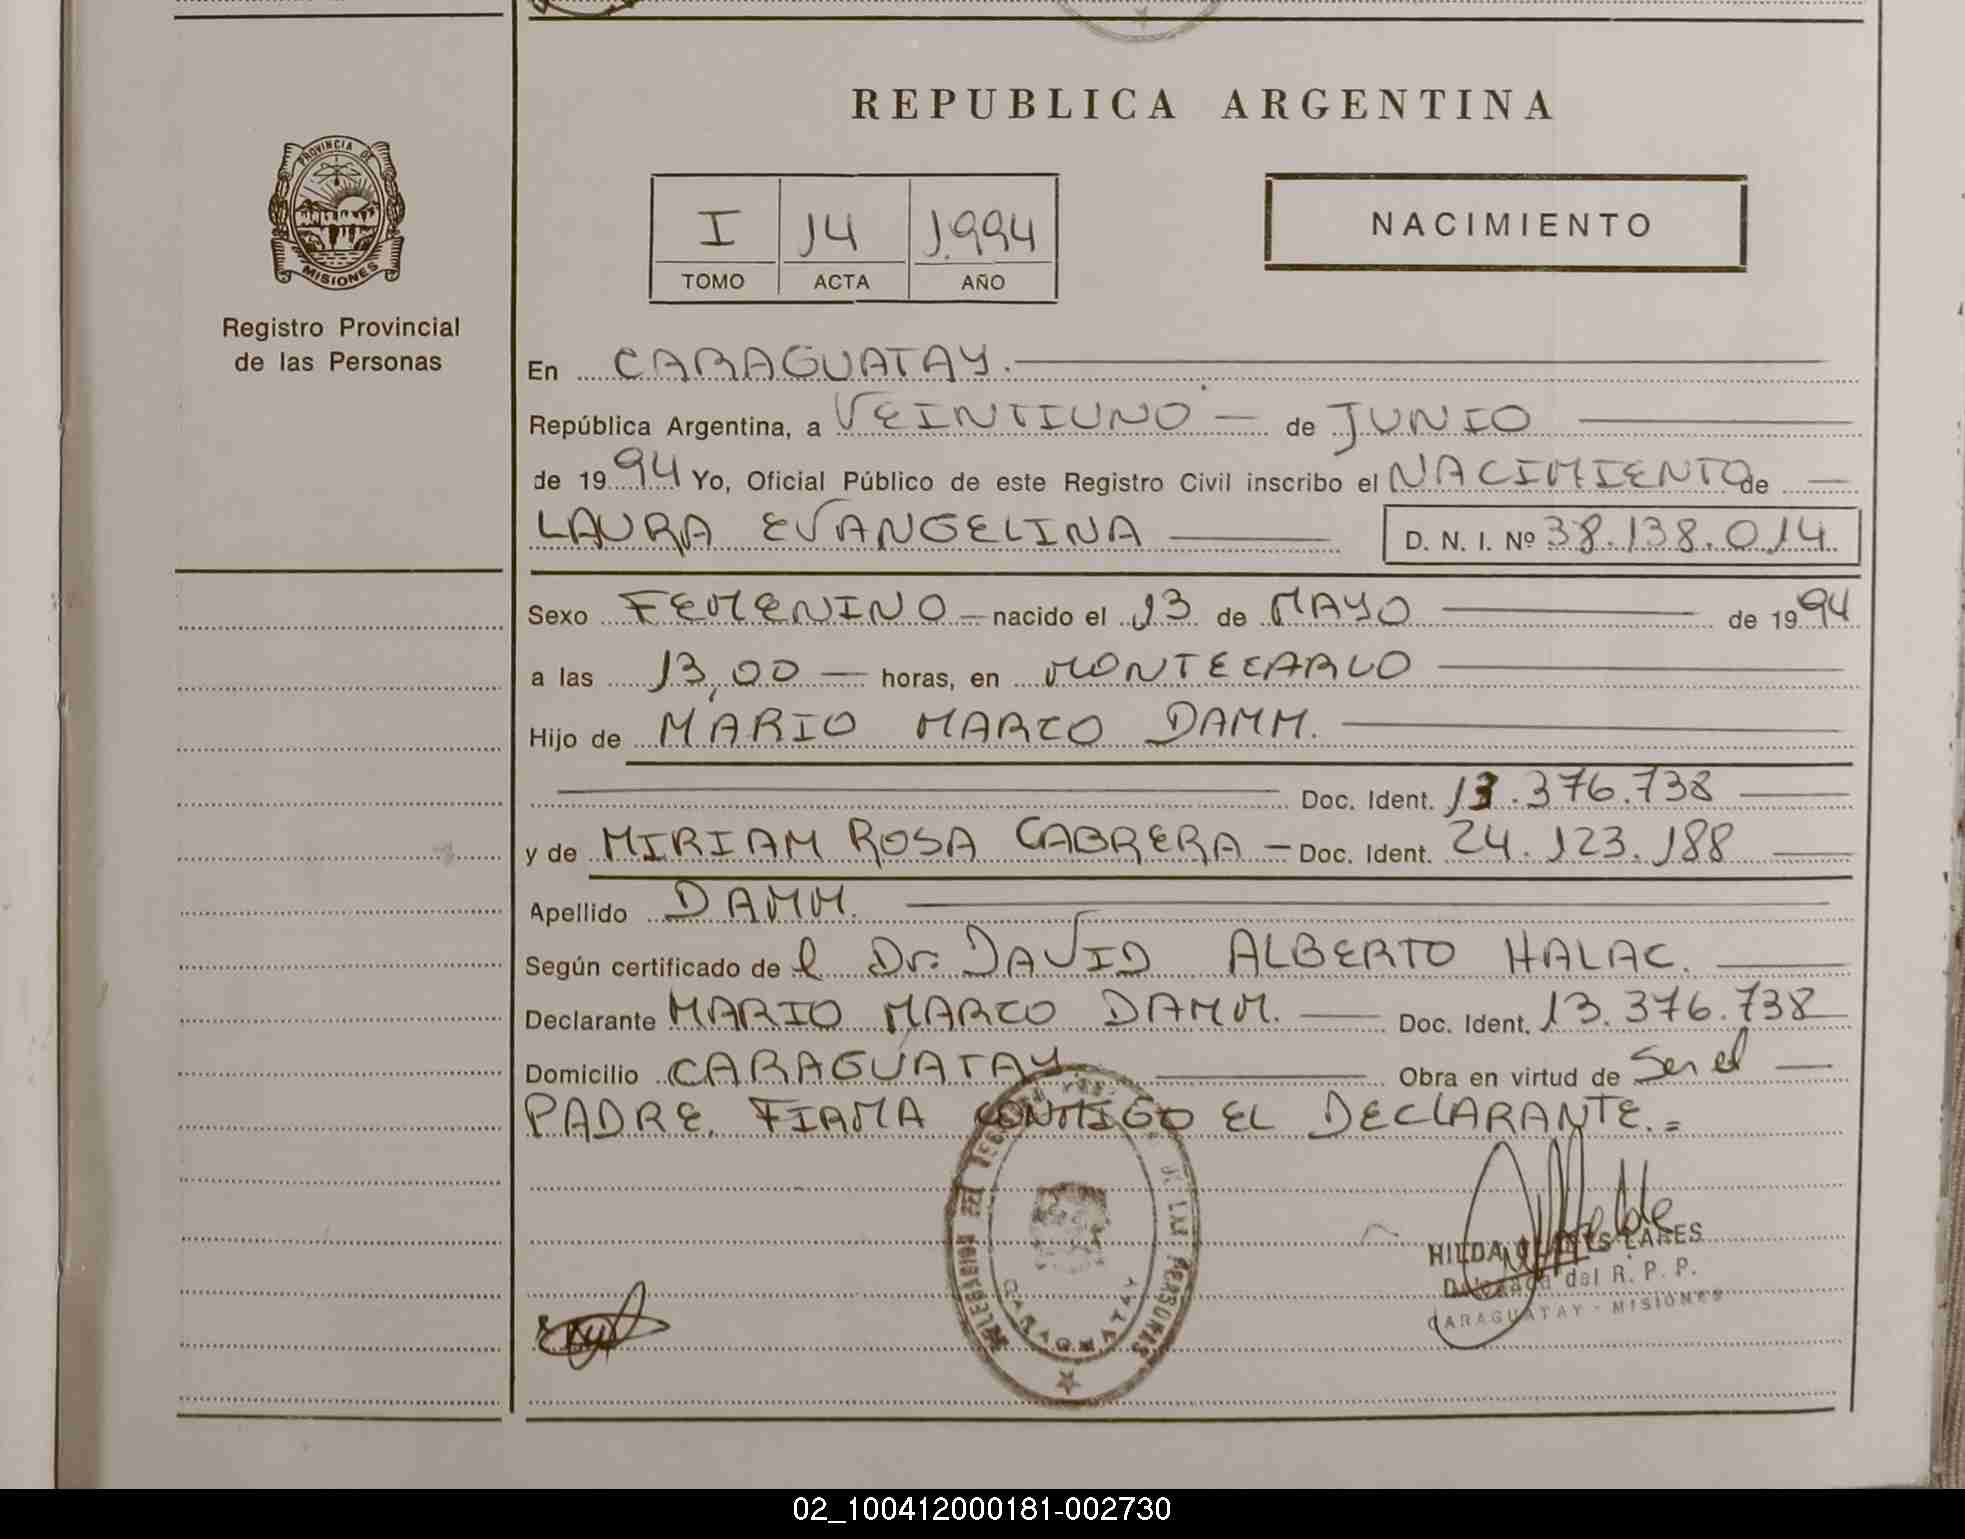 REPUBLICA ARGENTINA
PROVINCIA DE
MISIONES
Registro Provincial
de las Personas
I J4 J.994
TOMO ACTA AÑO
NACIMIENTO
En CARAGUATAY.
República Argentina, a VEINTIUNO — de JUNIO
de 1994 Yo, Oficial Público de este Registro Civil inscribo el NACIMIENTO de
LAURA EVANGELINA D. N. I. Nº 38.138.014
Sexo FEMENINO — nacido el 13 de MAYO de 1994
a las 13,00 — horas, en MONTECARLO
Hijo de MARIO MARCO DAMM.
Doc. Ident. 13.376.738
y de MIRIAM ROSA CABRERA — Doc. Ident. 24.123.188
Apellido DAMM.
Según certificado de l Dr. DAVID ALBERTO HALAC.
Declarante MARIO MARCO DAMM. Doc. Ident. 13.376.738
Domicilio CARAGUATAY Obra en virtud de Ser el
PADRE. FIRMA CONMIGO EL DECLARANTE.=
DE LAS PERSONAS
CARAGUATAY
HILDA LARES
Delegada del R. P. P.
CARAGUATAY - MISIONES
02_100412000181-002730